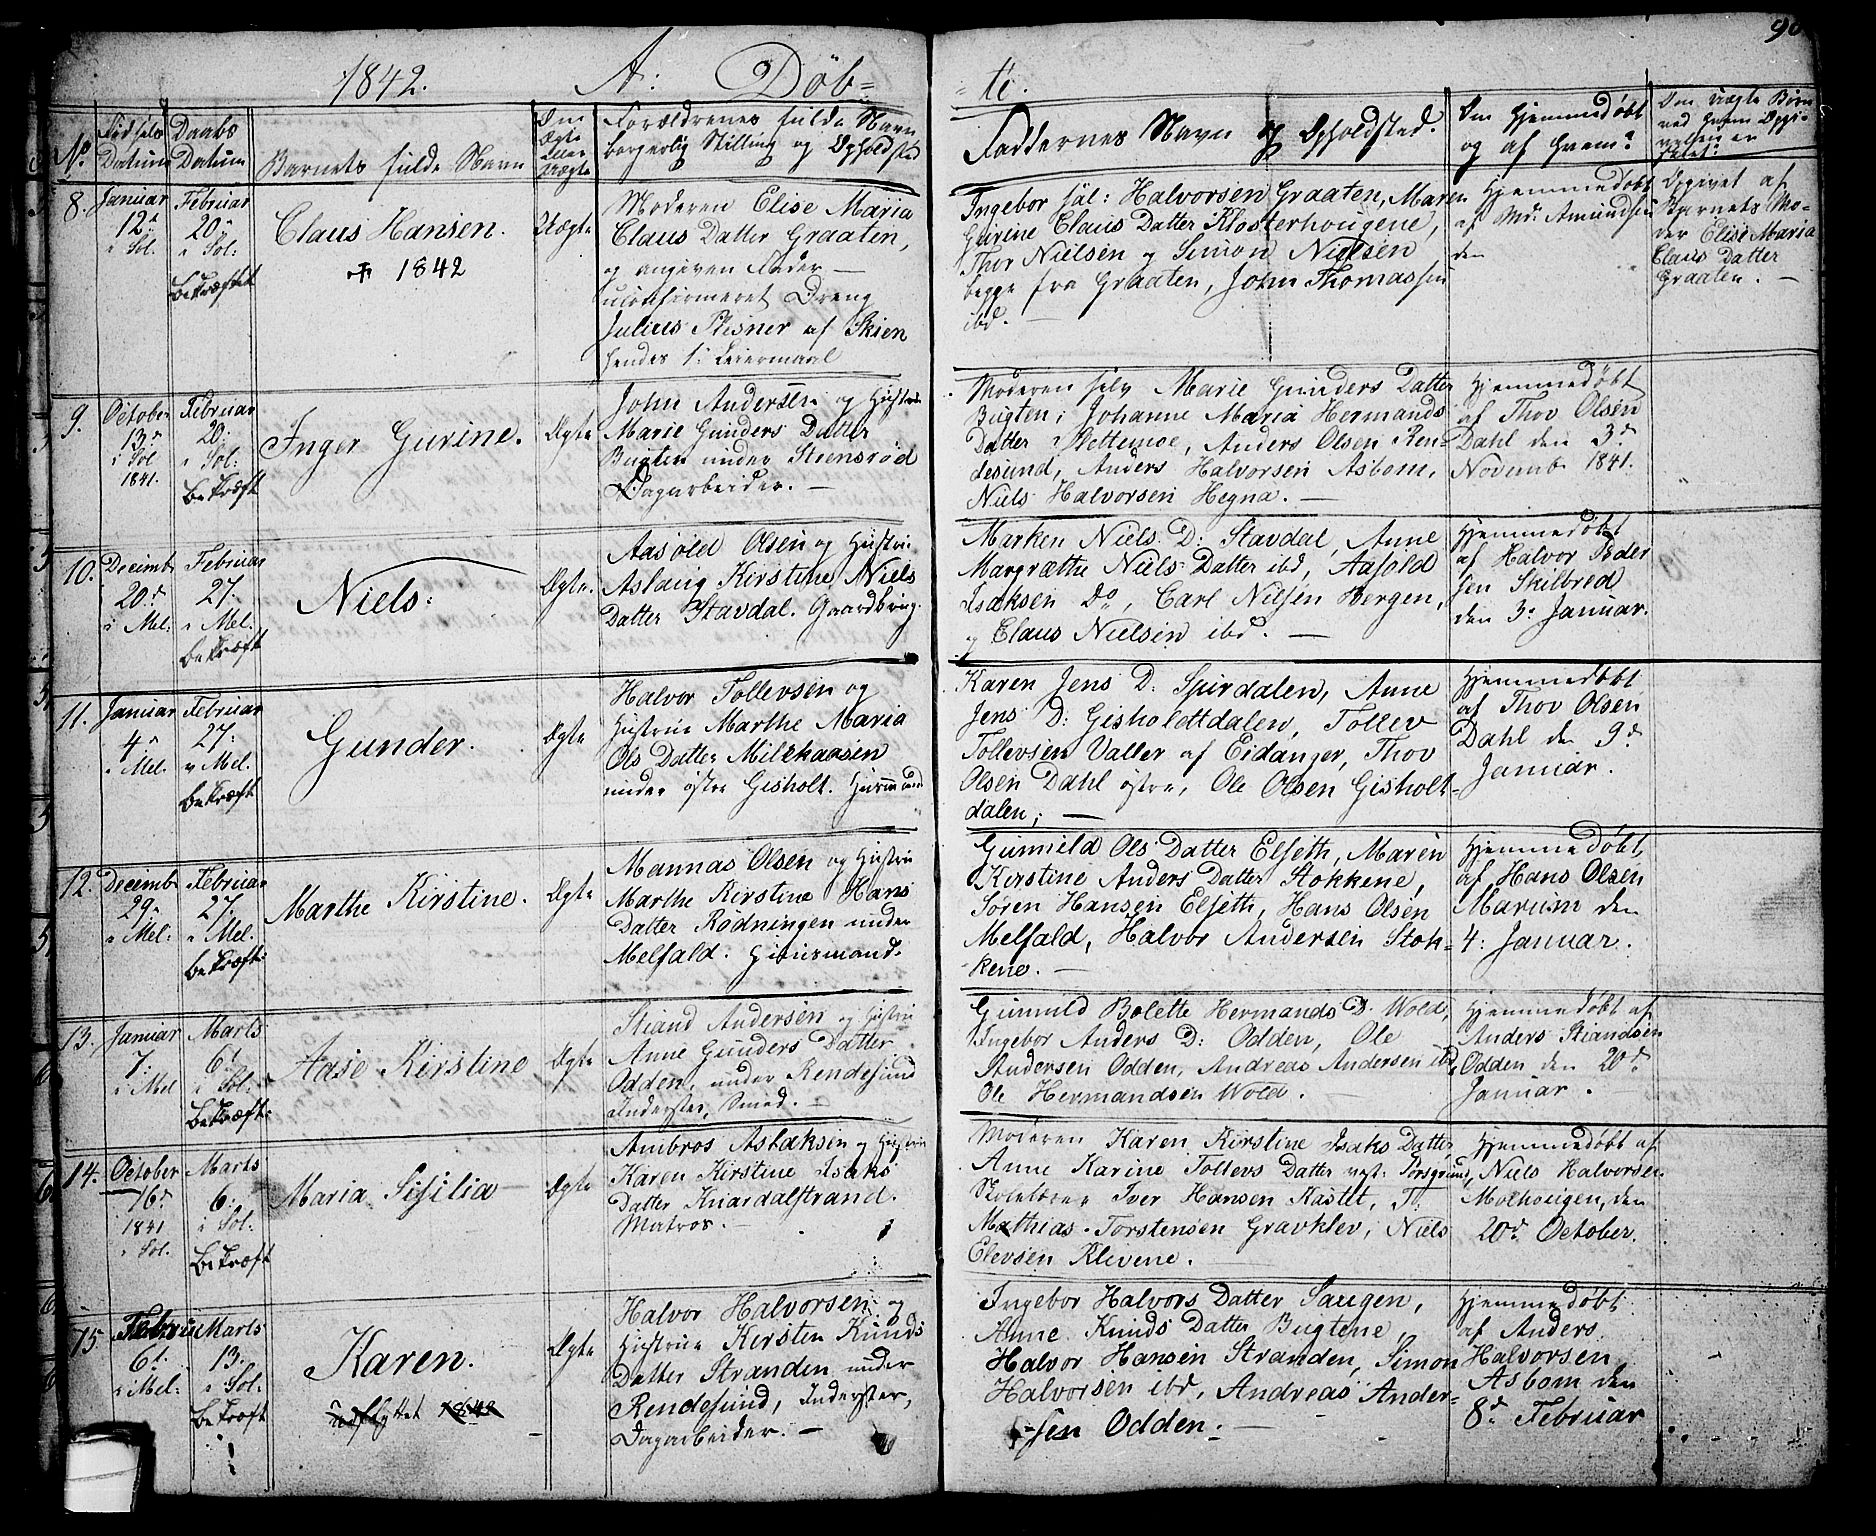 90
1842. A: Döb-
-te.
No.
Fødsels Datum
Daabs Datum
Barnets fulde Navn
Om Ægte eller Uægte
Forældrenes fulde Navn
borgerlig Stilling og Opholdsted
Faddernes Navn og Opholdsted.
Om Hjemmedøbt
og af hvem?
Om Uægte Børn
8. Januar 12te i Sol.
Februar 20. i Sol: bekræftet
Claus Hansen.
1842
Uægte
Moderen Elise Maria
Claus Datter Graaten,
og angiven Fader —
uconfirmeret Dreng
Julius Plesner af Skien
hendes 1: Leiermaal
Ingebor Sål: Halvorsen Graaten, Maren
Gurine Claus Datter Klosterhougene,
Thor Nielsen og Simon Nielsen
begge fra Graaten, John Thomassen
ibd. —
Hjemmedøbt
af Md: Amundsen
den
Opgivet af
Barnets Mo-
der Elise Maria
Claus Datter
Graaten. —
9. October 13d i Sol 1841.
Februar 20. i Sol: bekræft
Inger Gurine.
Ægte
John Andersen og Hustrue
Marie Gunders Datter
Bugten under Stensrød
Dagarbeider. —
Moderen selv Marie Gunders Datter
Bugten; Johanne Maria Hermands
Datter Slettemoe, Anders Olsen Ren-
desund, Anders Halvorsen Asbom,
Niels Halvorsen Hegna. —
Hjemmedøbt
af Thov Olsen
Dahl den 3d
Novemb. 1841.
10. Decemb. 20.d i Mel:
Februar 27. i Mel. bekræft
Niels.
Ægte.
Aasold Olsen og Hustru
Aslaug Kirstine Niels
Datter Stavdal. Gaardbrug.
Marken Niels D: Stavdal, Anne
Margræthe Niels Datter ibd, Aasold
Isaksen Do, Carl Nilsen Bergen,
og Claus Nielsen ibd. —
Hjemmedøbt
af Halvor Peder
sen Skilbred
den 3: Januar.
11. Januar 4d i Mel.
Februar 27. i Mel. bekræft
Gunder.
Ægte
Halvor Tollevsen og
Hustrue Marthe Maria
Ols Datter Milekaasen
under østre Gisholt. Huusmand
Karen Jens D: Spirdalen, Anne
Jens D: Gisholdtdalen, Tollev
Tollevsen Valler af Eidanger, Thov
Olsen Dahl østre, Ole Olsen Gisholt-
dalen; —
Hjemmedøbt
af Thov Olsen
Dahl den 9d
Januar.
12. Decemb. 29d i Mel:
Februar 27. i Mel. bekræft:
Marthe Kirstine.
Ægte
Mannas Olsen og Hustru
Marthe Kirstine Hans
Datter Rødningen under
Melfald. Huusmand.
Gunnild Ols Datter Elseth, Maren
Kirstine Anders Datter Stokkene,
Søren Hansen Elseth, Hans Olsen
Melfald, Halvor Andersen Stok-
kene. —
Hjemmedøbt
af Hans Olsen
Marum den
4: Januar.
13. Januar 7. i Mel
Marts 6t i Sol: bekræft:
Aase Kirstine
Ægte
Stiand Andersen og Hustru
Anne Gunders Datter
Odden, under Rendesund
Inderster, Smed. —
Gunnild Bolette Hermands D. Wold,
Ingebor Anders D: Odden, Ole
Andersen Odden, Andreas Andersen ibd,
Ole Hermandsen Wold. —
Hjemmedøbt af
Anders Stiandsen
Odden den 20d
Januar.
14. October 16d 1841 i Sol.
Marts 6. i Sol: bekræft
Maria Sisilia
Ægte
Ambros Aslaksen og Hustru
Karen Kirstine Isaks
Datter Knardalstrand.
Matros. —
Moderen Karen Kirstine Isaks Datter,
Anne Karine Tollevs Datter vest: Porsgrund,
Skolelærer Iver Hansen Kastet, T:
Mathias Torstensen Gravklev, Niels
Elevsen Klevene.
Hjemmedøbt af
Niels Halvorsen
Molhougen, den
20d October.
15. Februar 6t. i Mel:
Marts 13. i Sol: bekræft
Karen.
udflyttet 1843
Ægte
Halvor Halvorsen og
Hustrue Kirsten Knuds
Datter Stranden under
Rendesund, Inderster,
Dagarbeider. —
Ingebor Halvors Datter Saugen,
Anne Knuds Datter Bugtene,
Halvor Hansen Stranden, Simon
Halvorsen ibd, Andreas Ander-
sen Odden. —
Hjemmedøbt
af Anders
Halvorsen
Asbom den
8d Februar